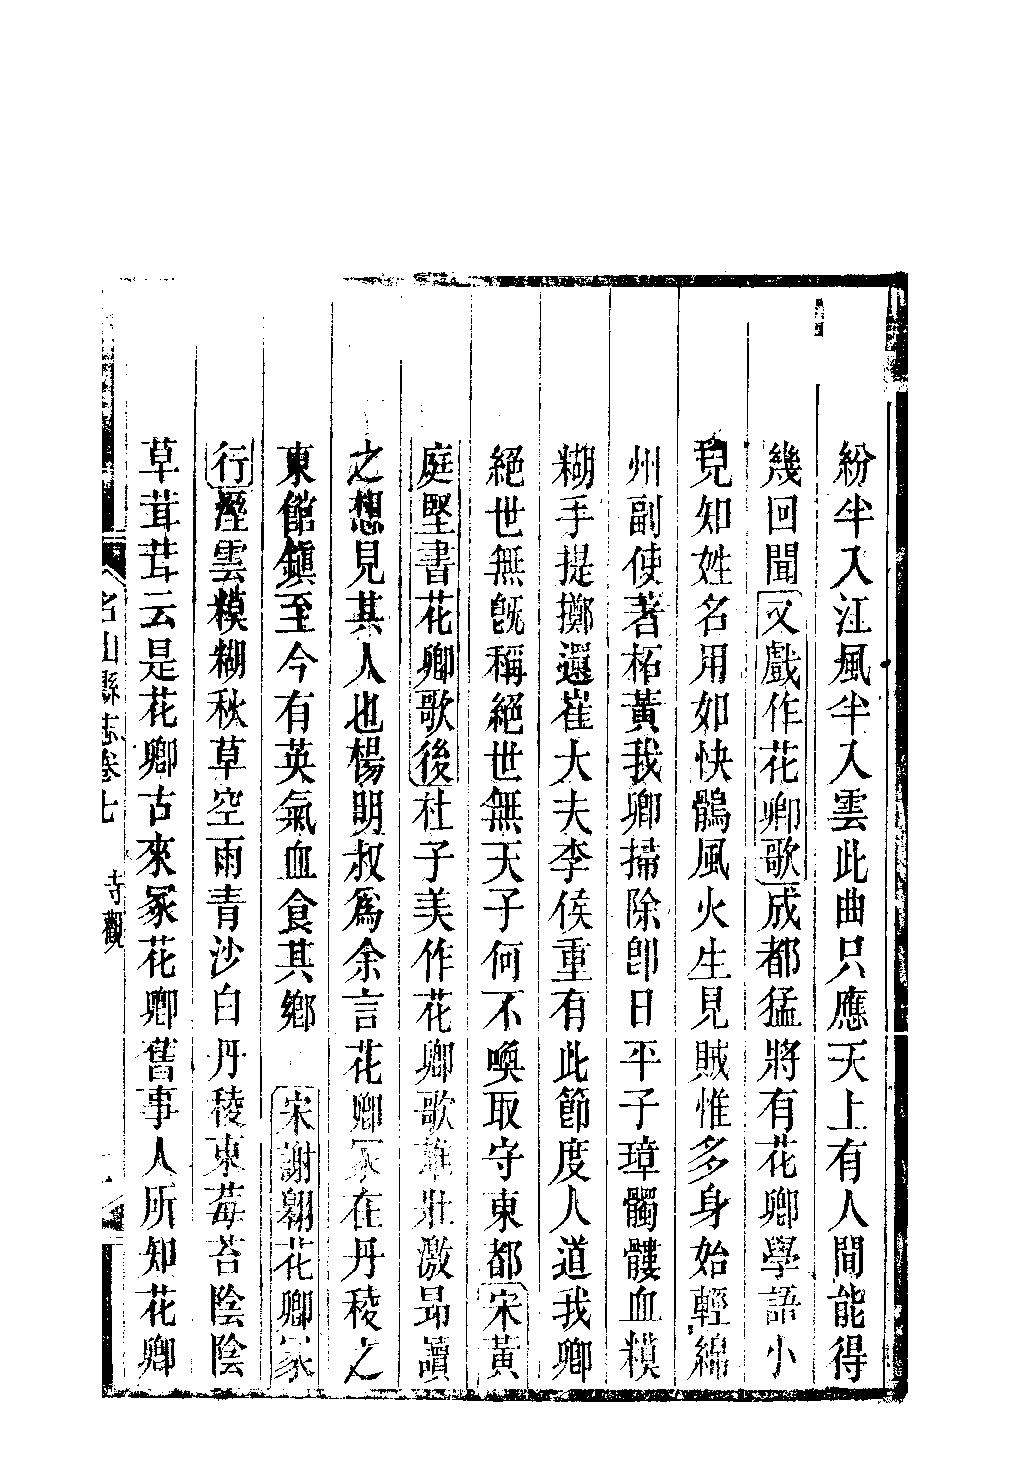 紛半入江風半入雲此曲只應天上有人間能得
幾回聞又戲作花卿歌成都猛將有花卿學語小
兒知姓名用如快鶻風火生見賊惟多身始輕綿
州副使著柘黃我卿掃除卽日平子璋髑髏血糢
糊手提擲還崔大夫李侯重有此節度人道我卿
絕世無旣稱絕世無天子何不喚取守東都宋黃
庭堅書花卿歌後杜子美作花卿歌雄壯激昻讀
之想見其人也楊明叔爲余言花卿冢在丹稜之
東館鎭至今有英氣血食其鄉 宋謝翱花卿冢
行溼雲糢糊秋草空雨青沙白丹稜東莓苔陰陰
草茸茸云是花卿古來冢花卿舊事人所知花卿
名山縣志卷七 寺觀